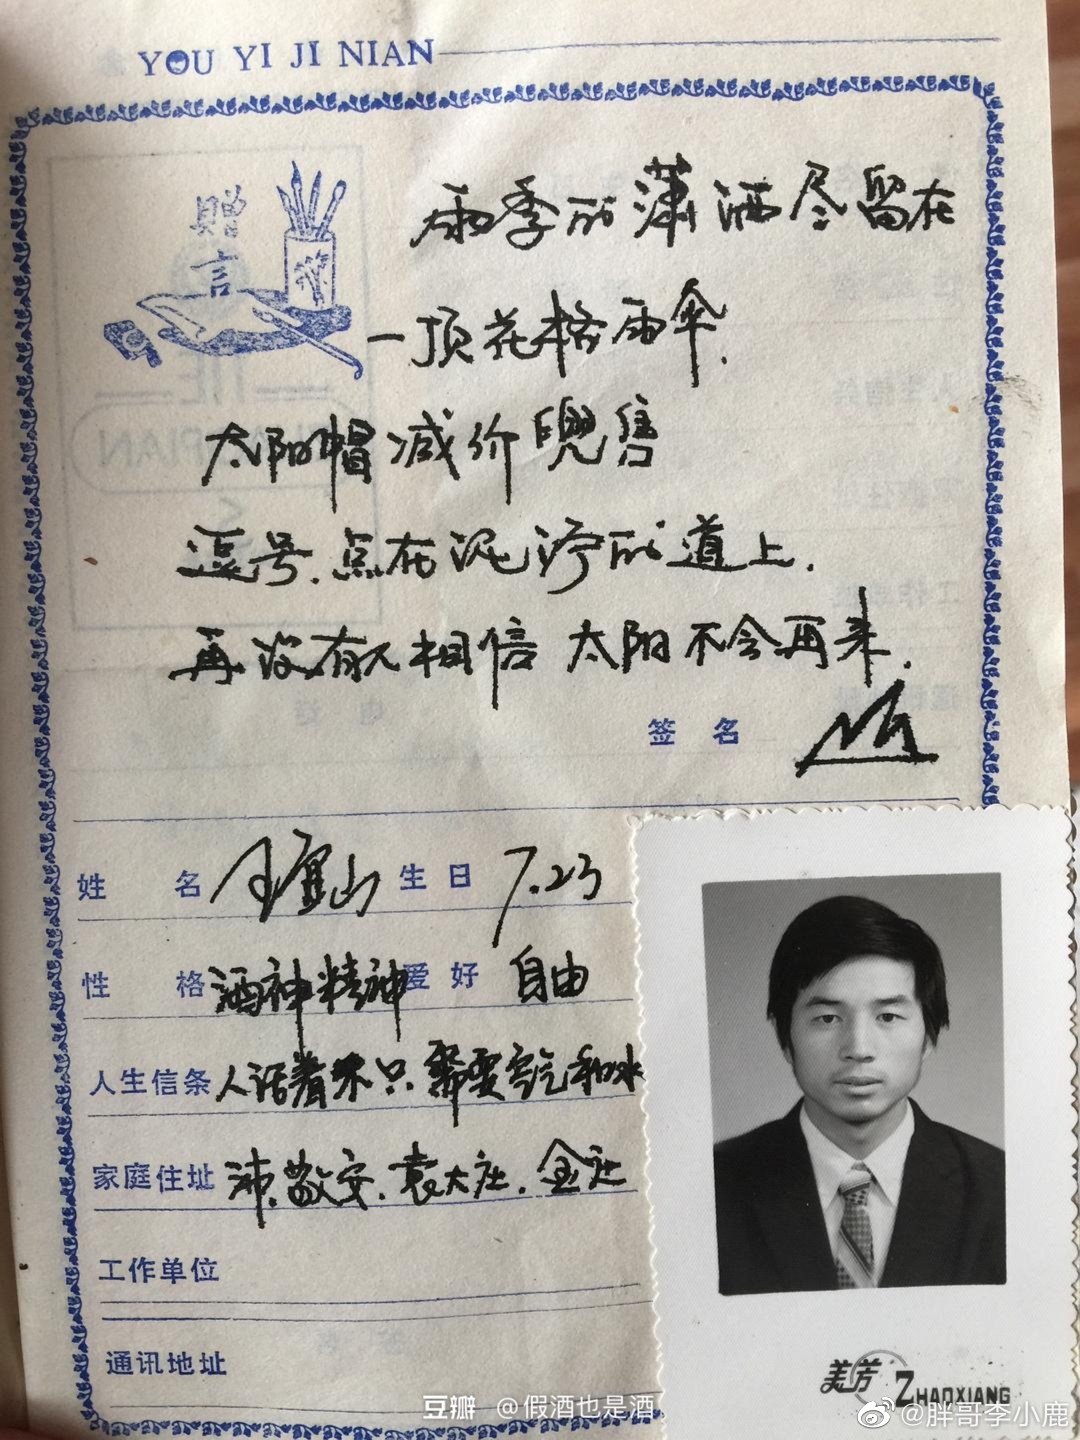 YOU YI JI NIAN
赠言
雨季的潇洒尽留在
一顶花格雨伞.
太阳帽减价兜售
逗号.点在泥泞的道上.
再没有人相信 太阳不会再来.
签名
姓名 山 生日 7.23
性格 酒神精神 爱好 自由
人生信条 人活着只需要空气和水
家庭住址 沛.敬安.袁大庄.金庄
工作单位
通讯地址
美芳 ZHAOXIANG
豆瓣 @假酒也是酒
@胖哥李小鹿